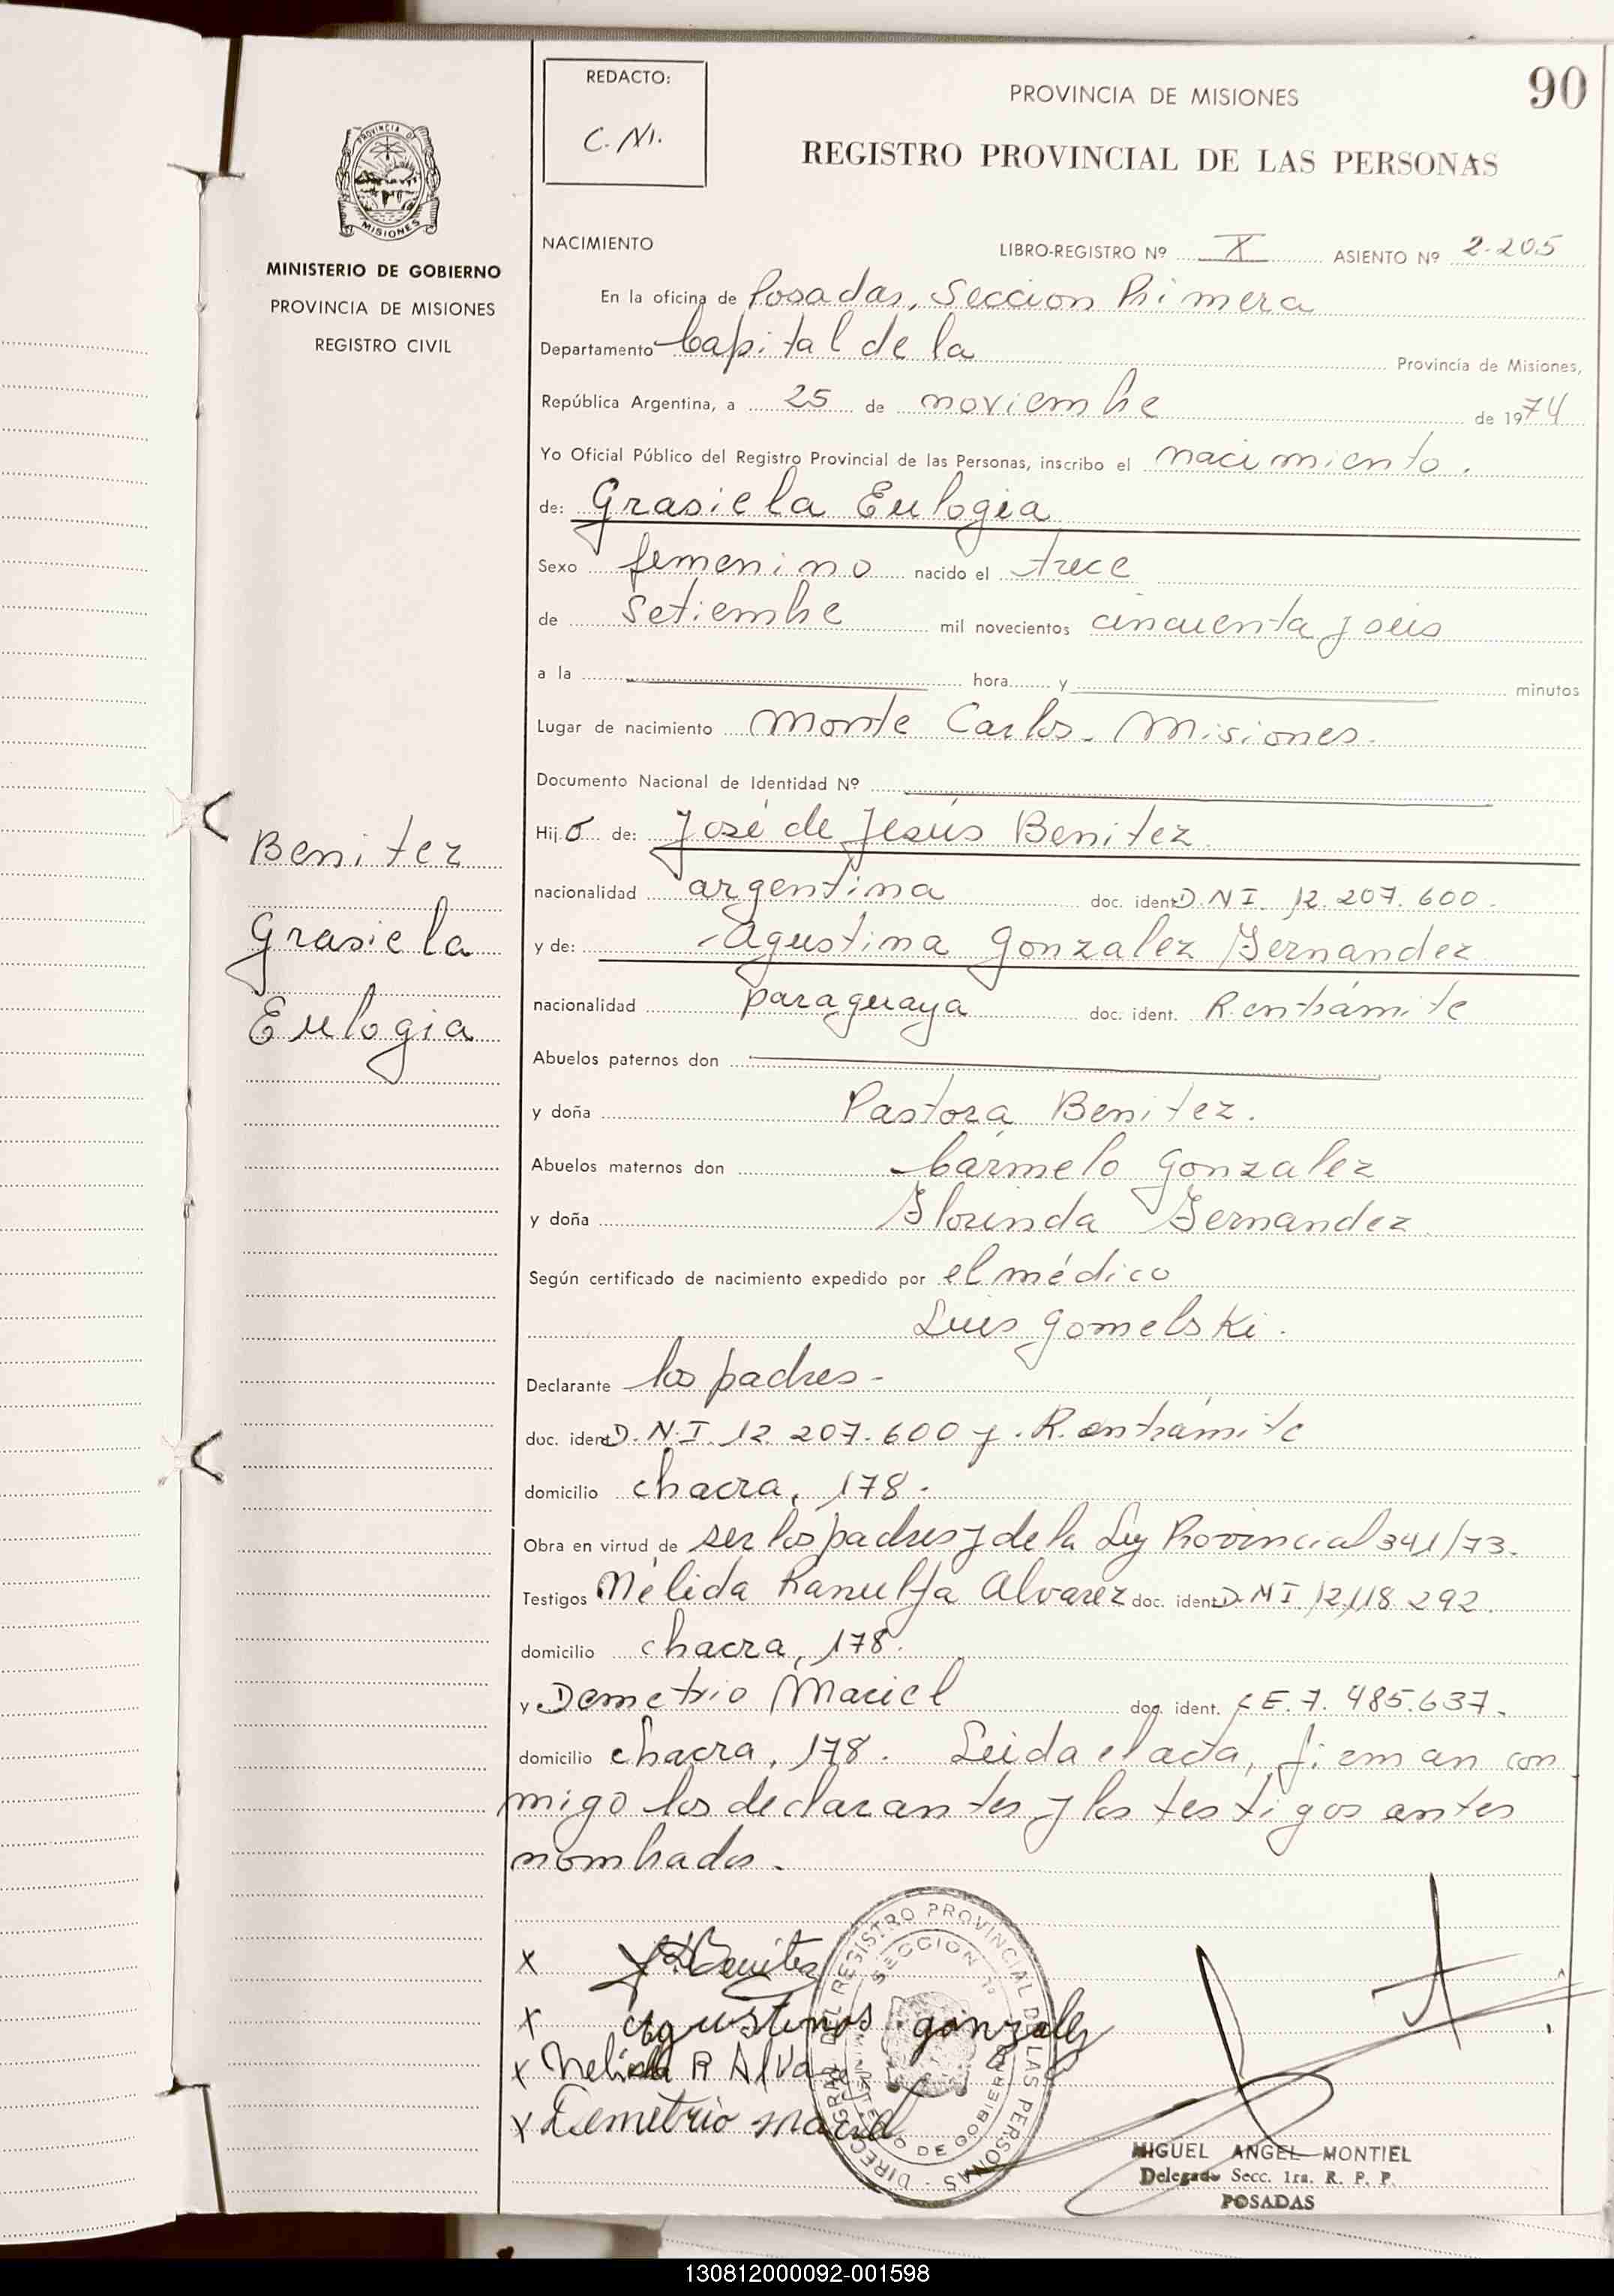 90
REDACTO:
C. M.
PROVINCIA DE MISIONES
REGISTRO PROVINCIAL DE LAS PERSONAS
PROVINCIA DE
MISIONES
MINISTERIO DE GOBIERNO
PROVINCIA DE MISIONES
REGISTRO CIVIL
NACIMIENTO
LIBRO-REGISTRO Nº X ASIENTO Nº 2.205
En la oficina de Posadas, Seccion Primera
Departamento Capital de la Provincia de Misiones,
República Argentina, a 25 de noviembre de 1974
Yo Oficial Público del Registro Provincial de las Personas, inscribo el nacimiento.
de: Grasiela Eulogia
Sexo femenino nacido el trece
de setiembre mil novecientos cincuenta y seis
a la hora y minutos
Lugar de nacimiento Monte Carlos. Misiones.
Documento Nacional de Identidad Nº
Hij a de: José de Jesús Benitez
nacionalidad argentina doc. ident D.N.I. 12.207.600.
y de: Agustina Gonzalez Fernandez
nacionalidad paraguaya doc. ident. R. en trámite
Abuelos paternos don
y doña Pastora Benitez.
Abuelos maternos don Cármelo Gonzalez
y doña Florinda Fernandez
Según certificado de nacimiento expedido por el médico
Luis Gomelski.
Declarante los padres-
doc. ident D.N.I. 12.207.600 y . R. en trámite
domicilio chacra, 178.
Obra en virtud de ser los padres y de la Ley Provincial 341/73.
Testigos Nélida Ranulfa Alvarez doc. ident D.N.I. 12.118.292.
domicilio chacra, 178.
y Demetrio Maciel doc. ident. L.E. 7.485.637.
domicilio chacra, 178. Leida el acta, firman con
migo los declarantes y los testigos antes
nombrados.
Benitez
Grasiela
Eulogia
x J Benitez
x agustina gonzalez
x Nelida R Alva
x Demetrio maciel
DIRECC. GRAL. DEL REGISTRO PROVINCIAL DE LAS PERSONAS
SECCION 1ª
MINISTERIO DE GOBIERNO
MIGUEL ANGEL MONTIEL
Delegado Secc. 1ra. R. P. P.
POSADAS
130812000092-001598